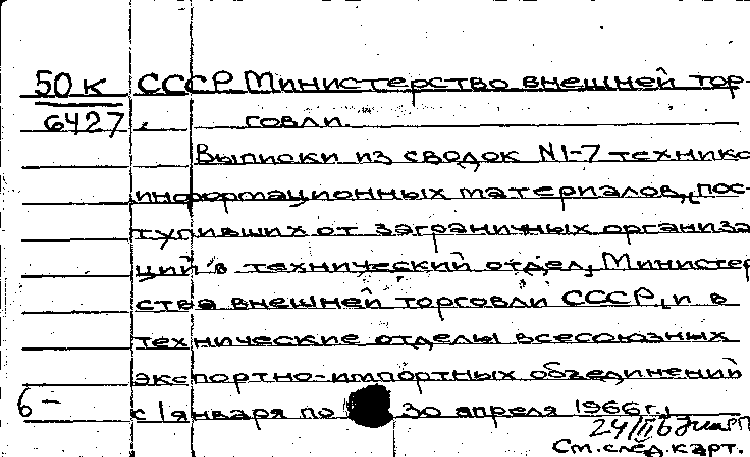 50к СССР Министерство внешней тор-
6427 говли.
Выписки из сводок N1-7 технико
информационных материалов, пос-
тупивших от заграничных организа
ций в технический отдел, Министер
ства внешней торговли СССР, и в
технические отделы всесоюзных
экспортно-импортных объединений
6- с 1 января по 30 апреля 1966г.,
24/II
См. след. карт.